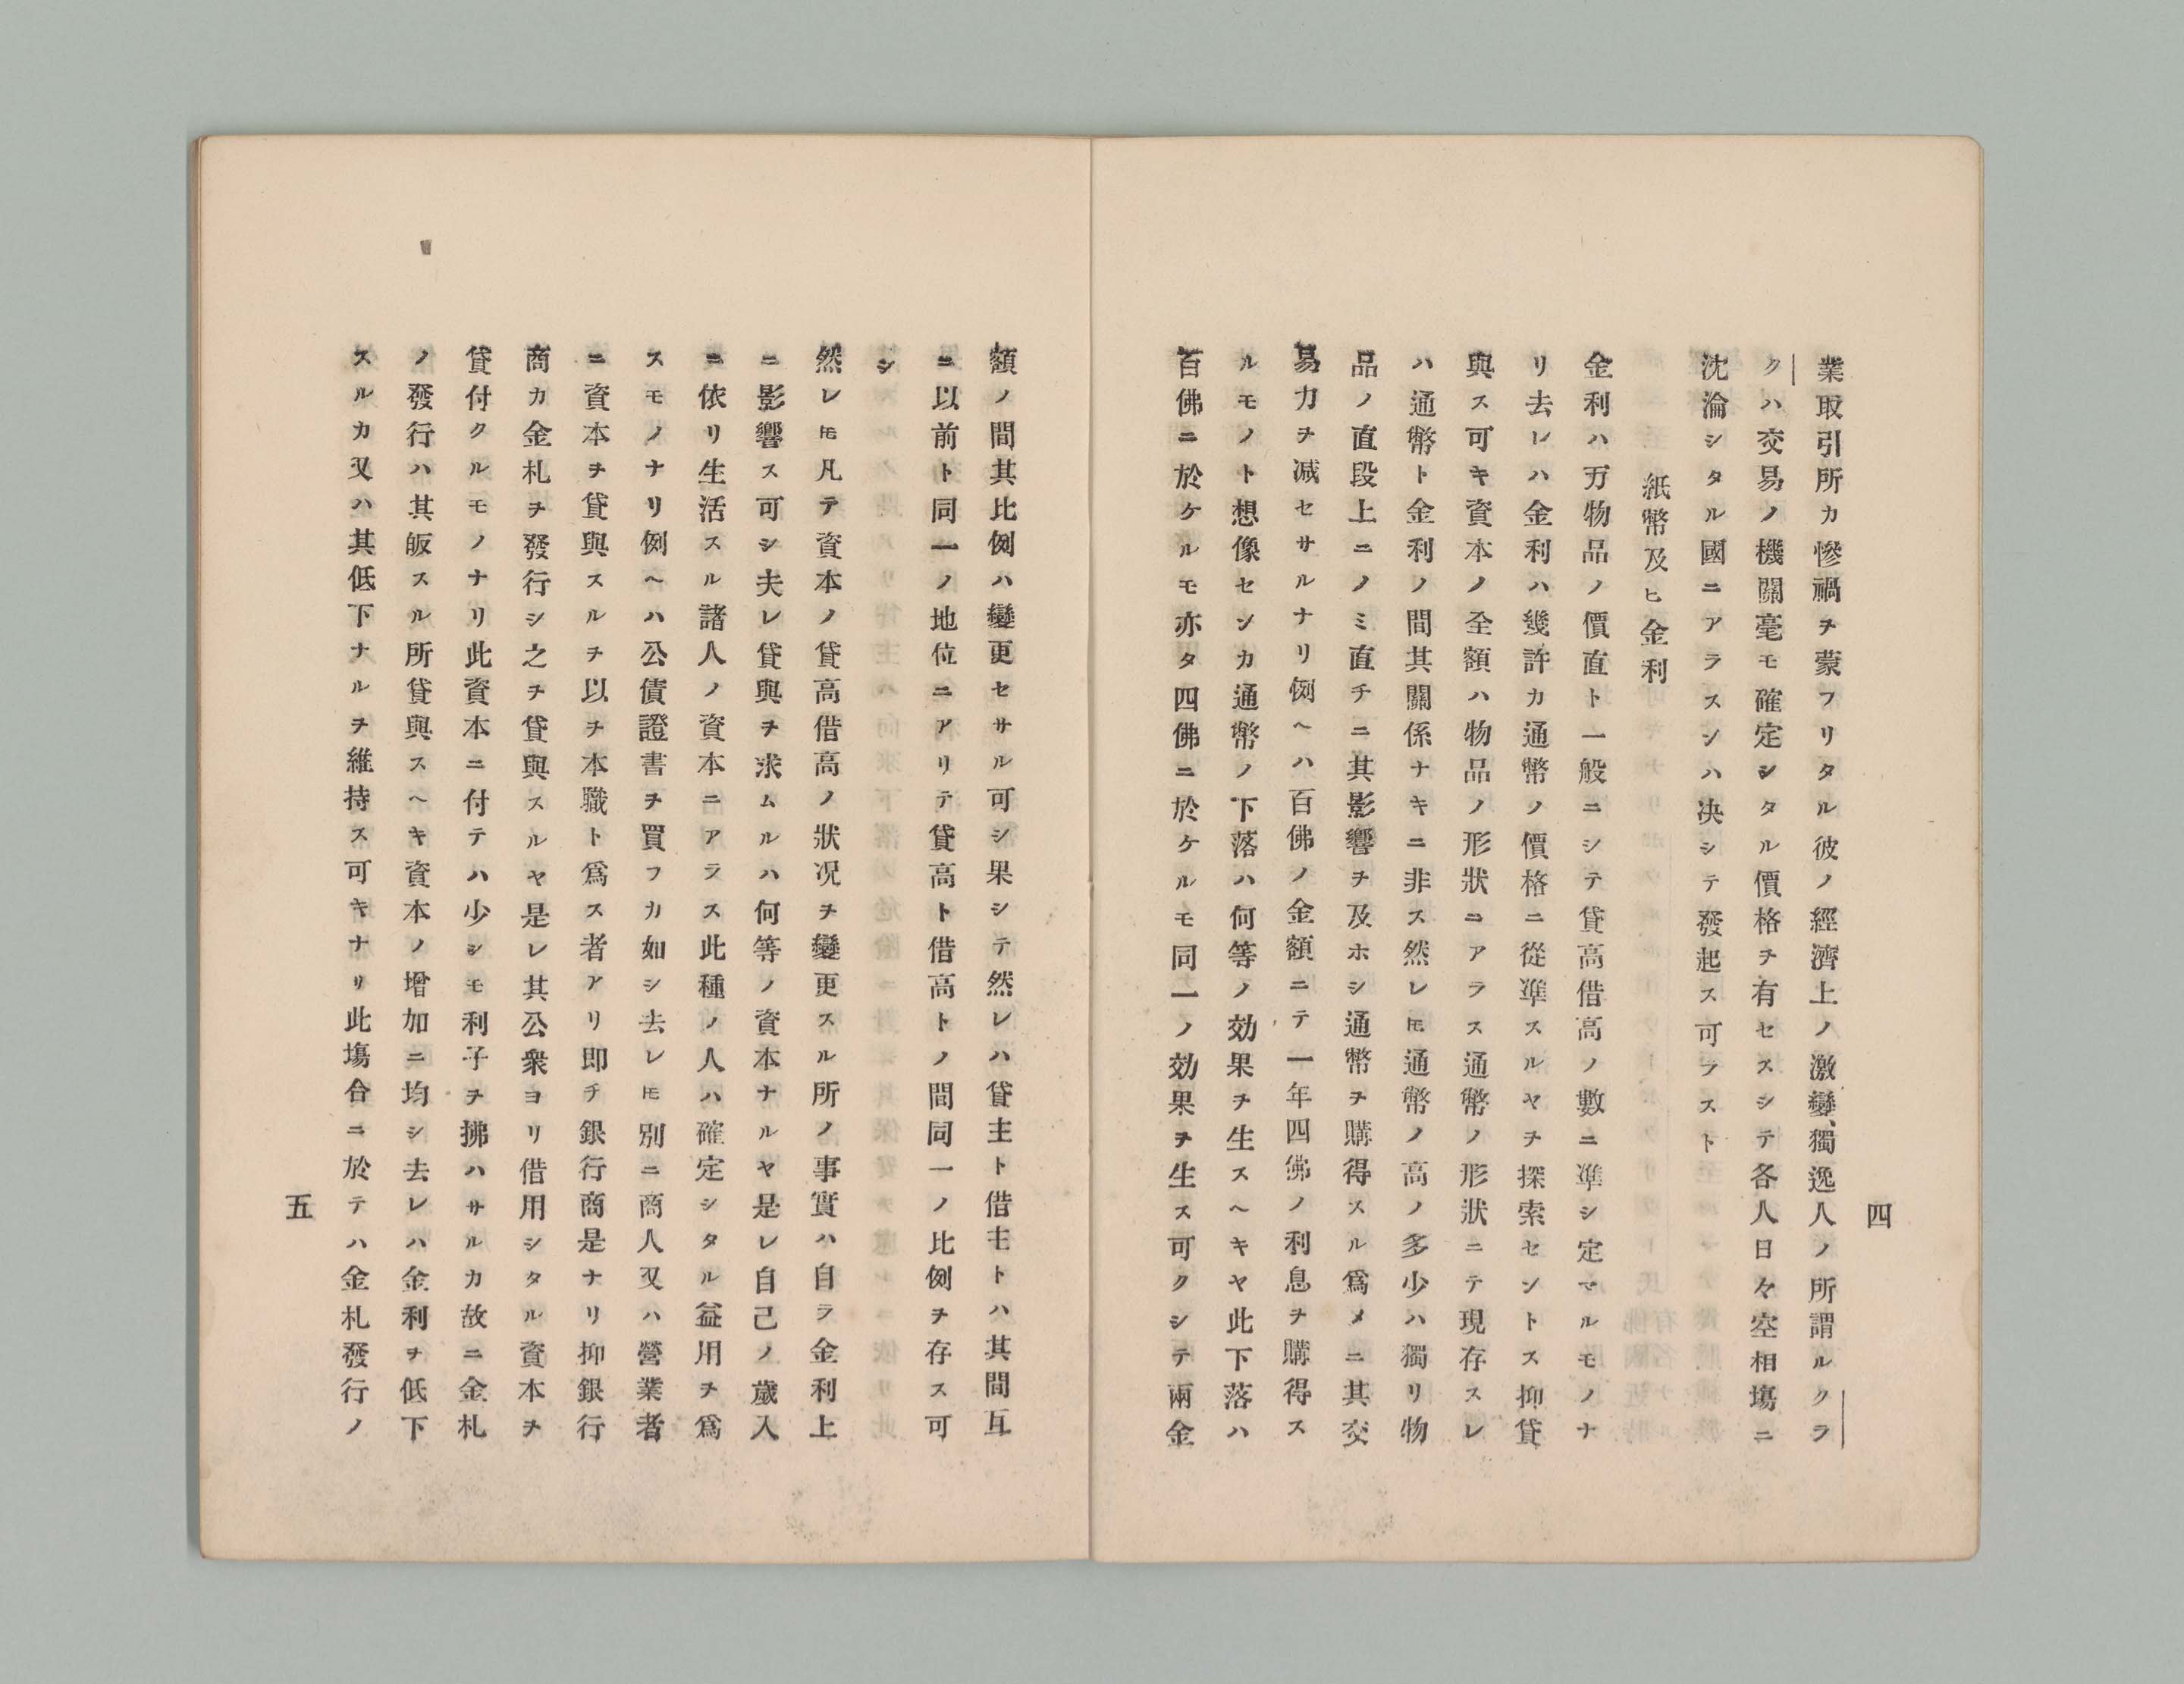 四
業取引所カ慘禍ヲ蒙フリタル彼ノ經濟上ノ激變、獨逸人ノ所謂ルクラ
クハ交易ノ機關毫モ確定シタル價格ヲ有セスシテ各人日々空相塲ニ
沈淪シタル國ニアラスンハ决シテ發起ス可ラスト
紙幣及ヒ金利
金利ハ万物品ノ價直ト一般ニシテ貸高借高ノ數ニ準シ定マルモノナ
リ去レハ金利ハ幾許カ通幣ノ價格ニ從準スルヤヲ探索セントス抑貸
與ス可キ資本ノ全額ハ物品ノ形狀ニアラス通幣ノ形狀ニテ現存スレ
ハ通幣ト金利ノ間其關係ナキニ非ス然レ𪜈通幣ノ高ノ多少ハ獨リ物
品ノ直段上ニノミ直チニ其影響ヲ及ホシ通幣ヲ購得スル爲メニ其交
易力ヲ减セサルナリ例ヘハ百佛ノ金額ニテ一年四佛ノ利息ヲ購得ス
ルモノト想像センカ通幣ノ下落ハ何等ノ効果ヲ生スヘキヤ此下落ハ
百佛ニ於ケルモ亦タ四佛ニ於ケルモ同一ノ効果ヲ生ス可クシテ兩金
額ノ間其比例ハ變更セサル可シ果シテ然レハ貸主ト借主トハ其間互
ニ以前ト同一ノ地位ニアリテ貸高ト借高トノ間同一ノ比例ヲ存ス可
シ
然レ𪜈凡テ資本ノ貸高借高ノ狀况ヲ變更スル所ノ事實ハ自ラ金利上
ニ影響ス可シ夫レ貸與ヲ求ムルハ何等ノ資本ナルヤ是レ自己ノ歲入
ニ依リ生活スル諸人ノ資本ニアラス此種ノ人ハ確定シタル益用ヲ爲
スモノナリ例ヘハ公債證書ヲ買フカ如シ去レ𪜈別ニ商人又ハ營業者
ニ資本ヲ貸與スルヲ以テ本職ト爲ス者アリ即チ銀行商是ナリ抑銀行
商カ金札ヲ發行シ之ヲ貸與スルヤ是レ其公衆ヨリ借用シタル資本ヲ
貸付クルモノナリ此資本ニ付テハ少シモ利子ヲ拂ハサルカ故ニ金札
ノ發行ハ其皈スル所貸與スヘキ資本ノ增加ニ均シ去レハ金利ヲ低下
スルカ又ハ其低下ナルヲ維持ス可キナリ此塲合ニ於テハ金札發行ノ
五